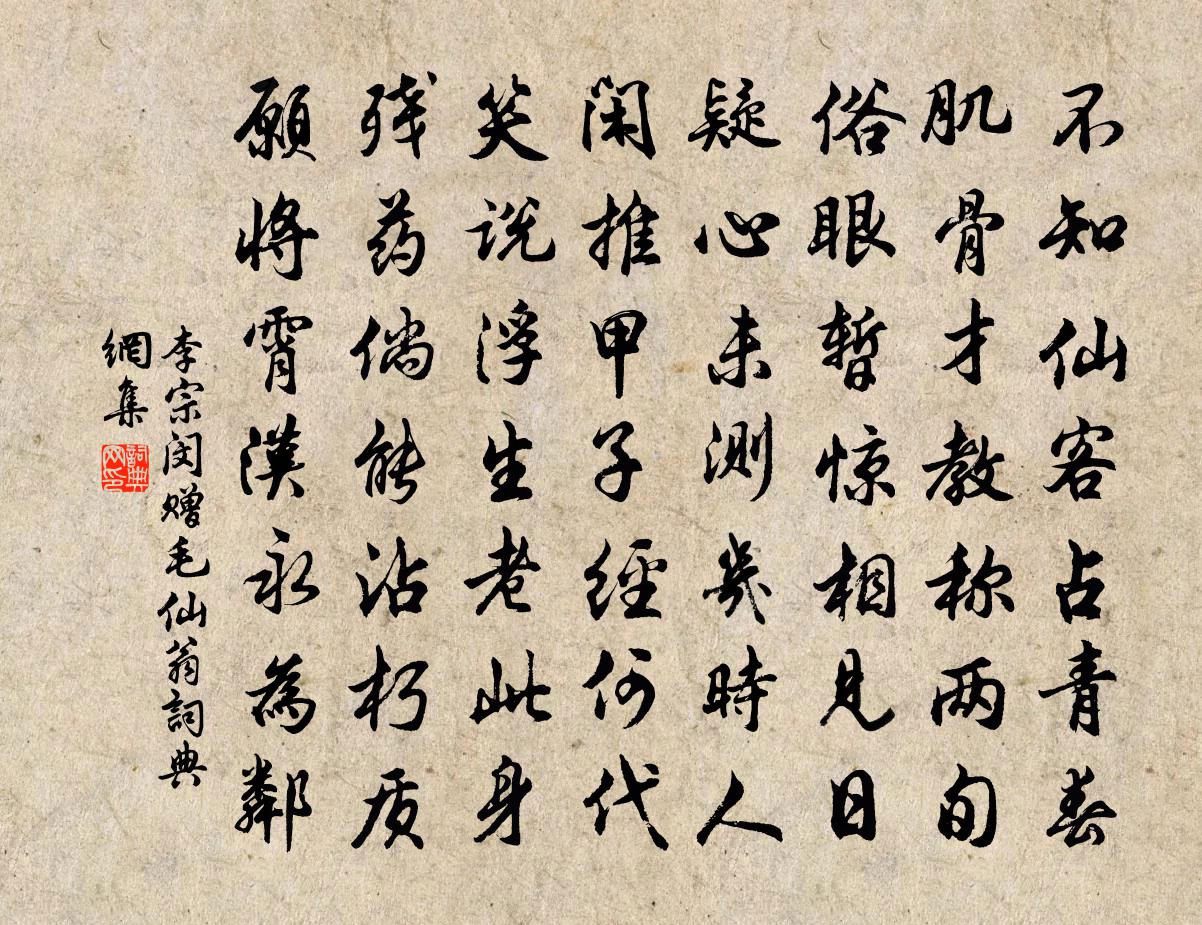 不知仙客占青春
肌骨才教称两旬
俗眼暂惊相见日
疑心未测几时人
闲推甲子经何代
笑说浮生老此身
残药倘能沾朽质
愿将霄汉永为邻
李宗闵赠毛仙翁詞典
網集
詞典
网印